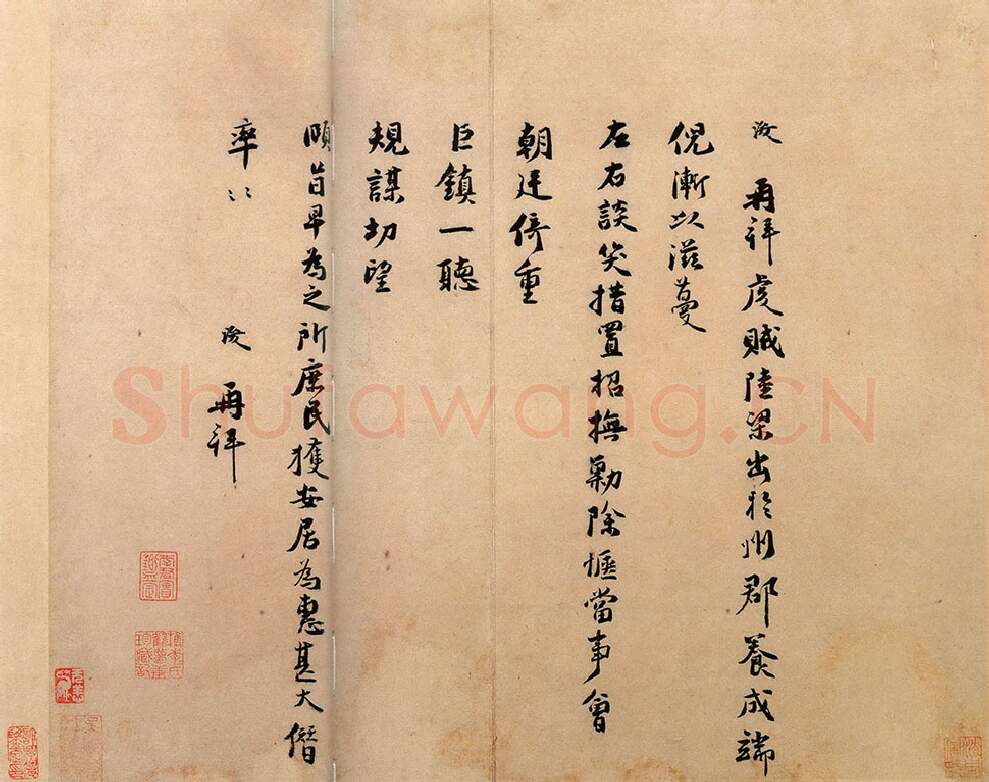 浚 再拜虔賊陸梁出於州郡養成端
倪漸以滋蔓
左右談笑措置招撫勦除愜當事會
朝廷倚重
巨鎮一聽
規謀切望
頤旨早為之所庶民獲安居為惠甚大僭
率〻 浚 再拜
Shufawang.CN